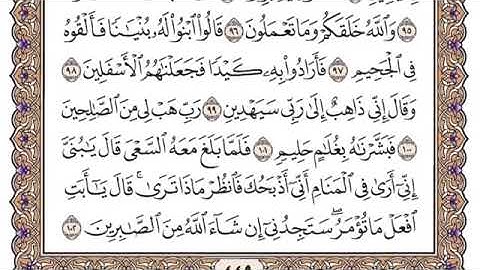 ٩٥ وَٱللَّهُ خَلَقَكُمْ وَمَا تَعْمَلُونَ ٩٦ قَالُوا۟ ٱبْنُوا۟ لَهُۥ بُنْيَـٰنًا فَأَلْقُوهُ
فِى ٱلْجَحِيمِ ٩٧ فَأَرَادُوا۟ بِهِۦ كَيْدًا فَجَعَلْنَـٰهُمُ ٱلْأَسْفَلِينَ ٩٨
وَقَالَ إِنِّى ذَاهِبٌ إِلَىٰ رَبِّى سَيَهْدِينِ ٩٩ رَبِّ هَبْ لِى مِنَ ٱلصَّـٰلِحِينَ
١٠٠ فَبَشَّرْنَـٰهُ بِغُلَـٰمٍ حَلِيمٍ ١٠١ فَلَمَّا بَلَغَ مَعَهُ ٱلسَّعْىَ قَالَ يَـٰبُنَىَّ
إِنِّىٓ أَرَىٰ فِى ٱلْمَنَامِ أَنِّىٓ أَذْبَحُكَ فَٱنظُرْ مَاذَا تَرَىٰ ۚ قَالَ يَـٰٓأَبَتِ
ٱفْعَلْ مَا تُؤْمَرُ ۖ سَتَجِدُنِىٓ إِن شَآءَ ٱللَّهُ مِنَ ٱلصَّـٰبِرِينَ ١٠٢